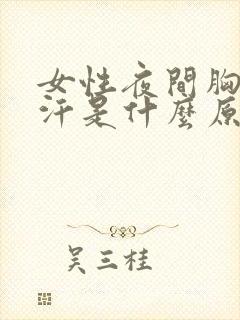 女性夜間胸
汗是什麼原
吴三桂